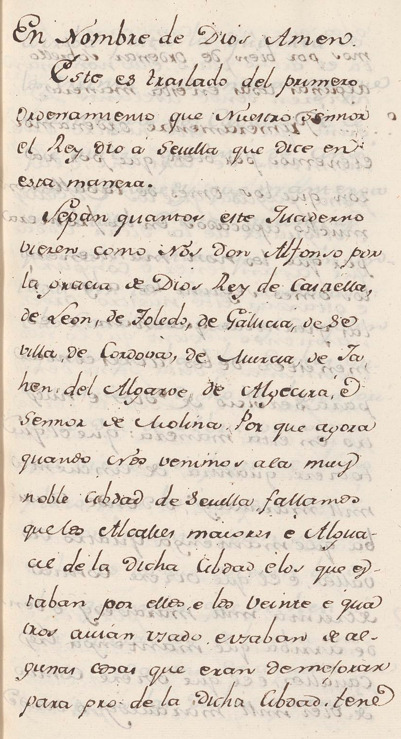 En Nombre de Dios Amen.
Este es traslado del primero
Ordenamiento que Nuestro Sennor
el Rey dio a Sevilla que dice en
esta manera.
Sepan quantos este Quaderno
vieren como Nos Don Alfonso por
la gracia de Dios Rey de Castella,
de Leon, de Toledo, de Gallicia, de Se
villa, de Cordova, de Murcia, de Ja
hen, del Algarve, de Algecira, é
Sennor de Molina. Por que agora
quando Nos venimos a la muy
noble Cibdad de Sevilla fallamos
que los Alcalles maiores é Algua-
cil de la dicha Cibdad e los que es-
taban por ellos, e los veinte e qua
tros avian usado, e usaban de al-
gunas cosas que eran de mejorar
para pro: de la dicha Cibdad, tene